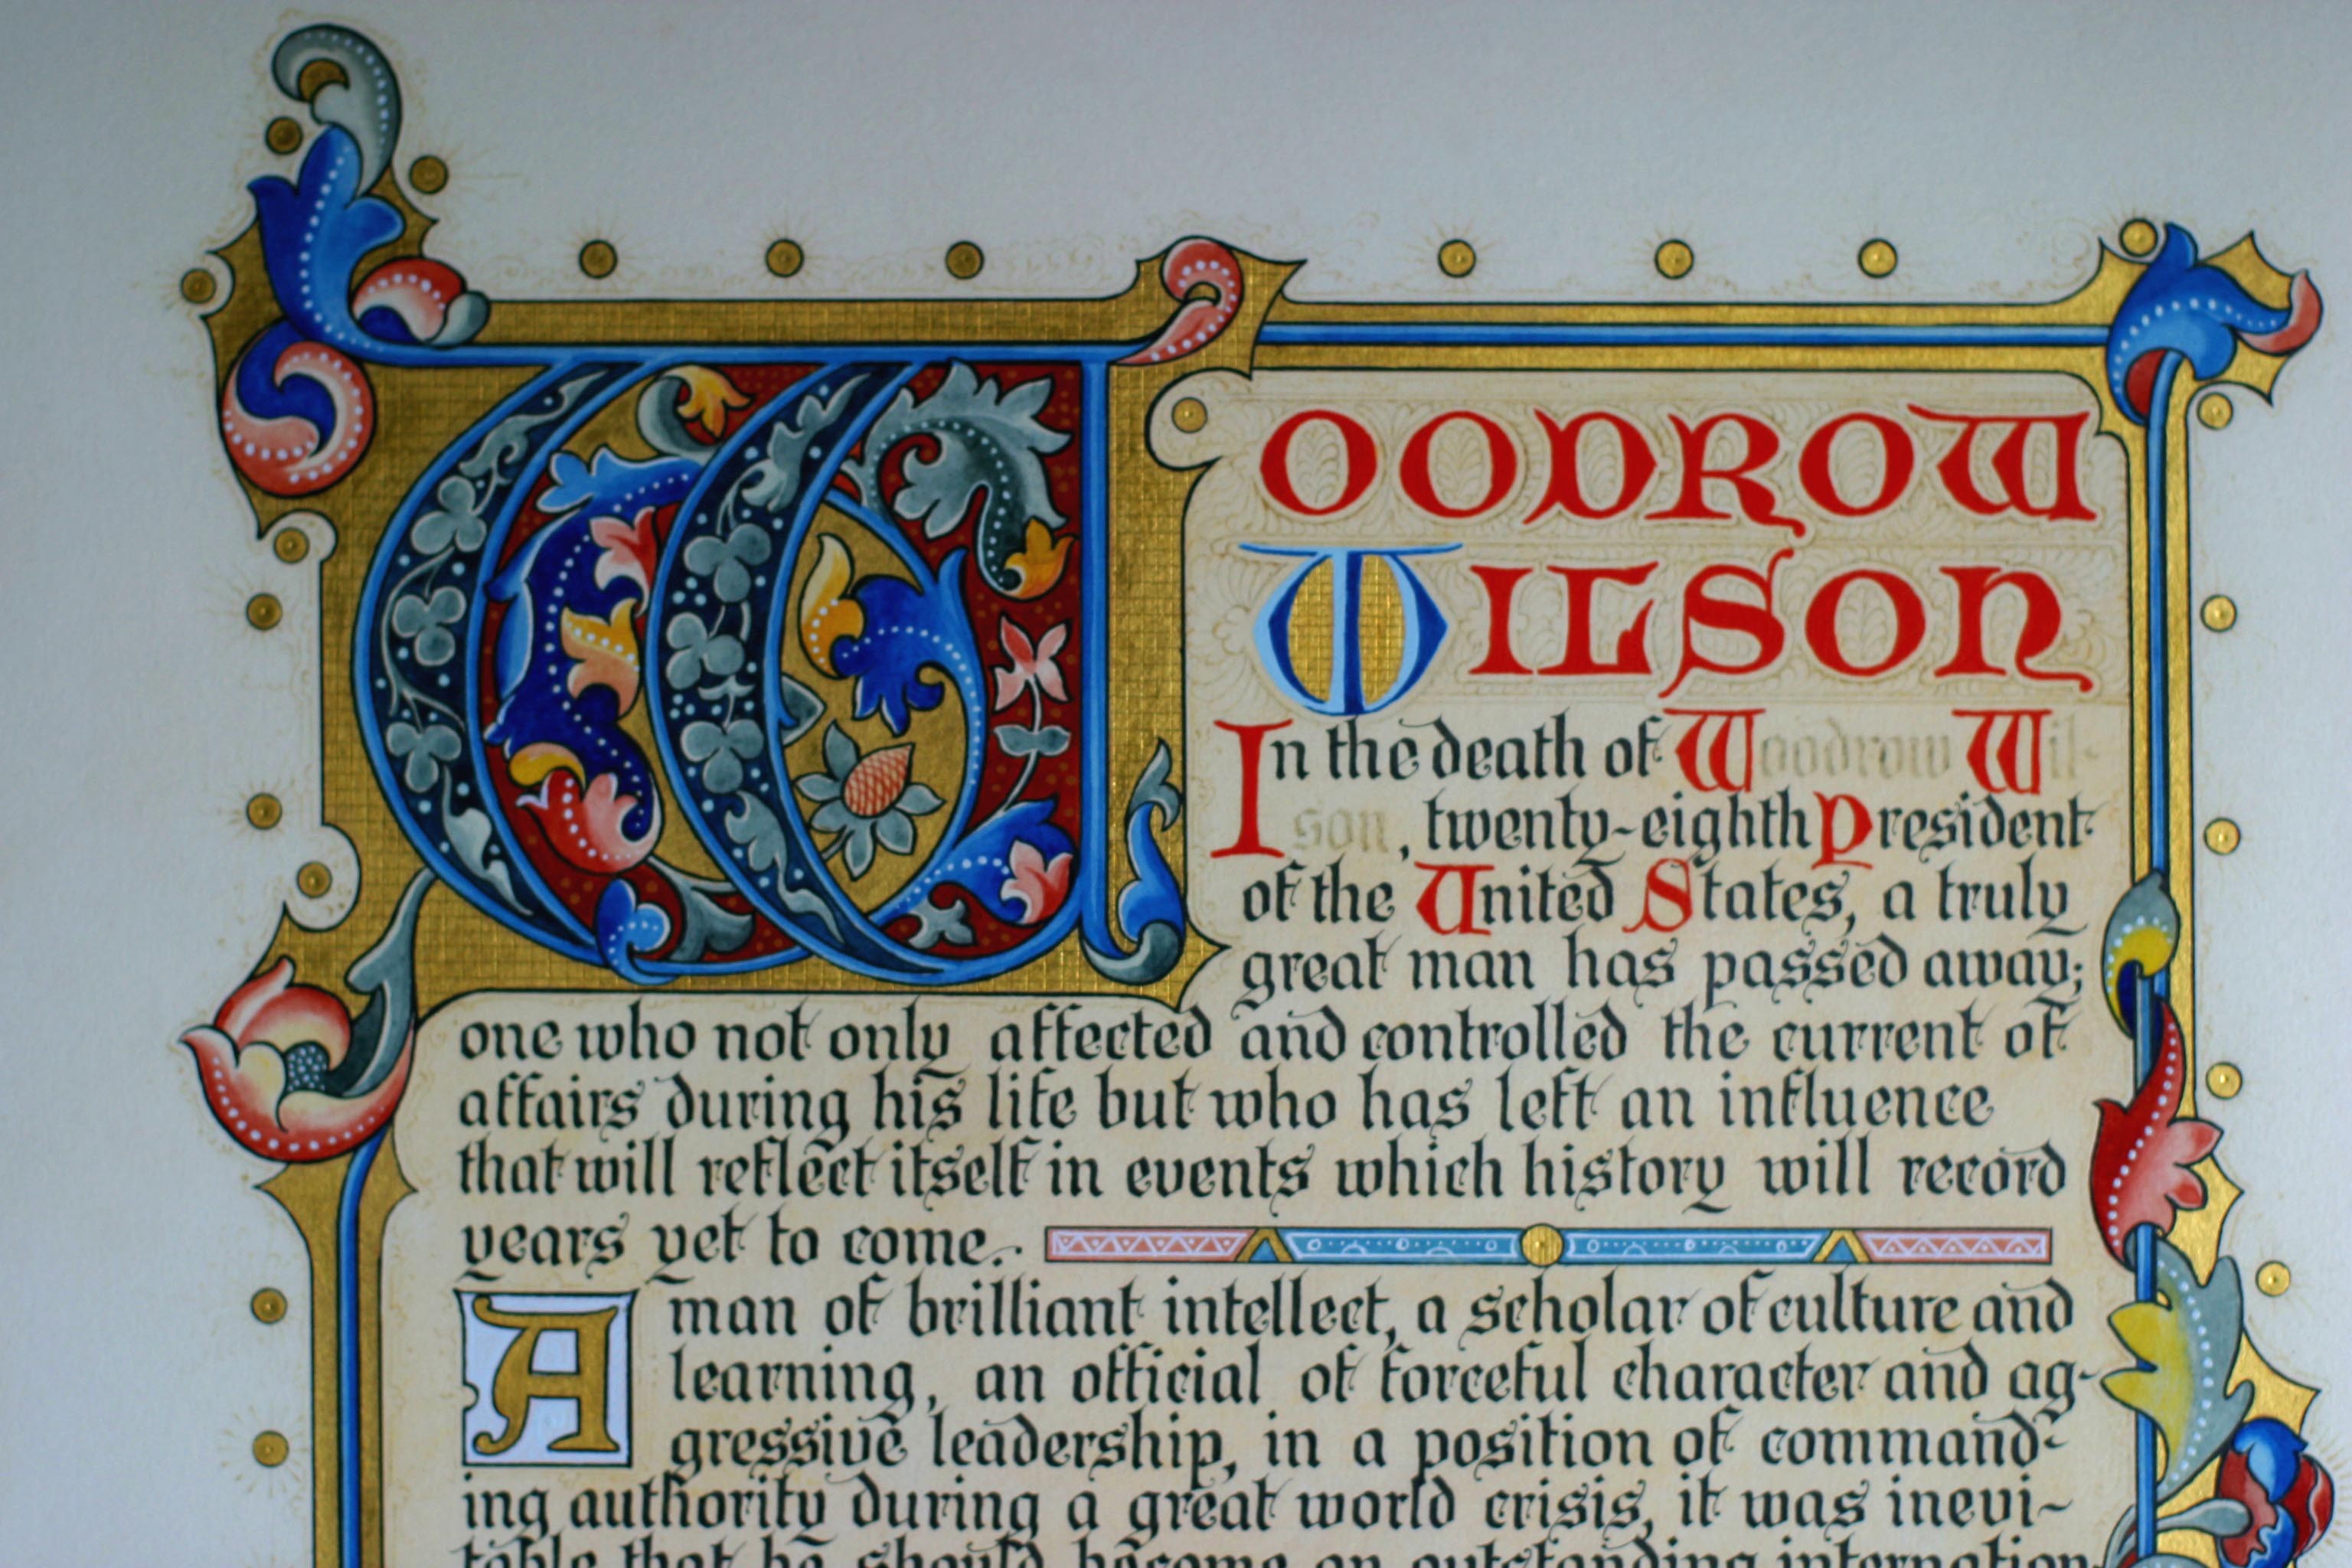 WOODROW
WILSON
In the death of Woodrow Wil-
son, twenty-eighth President
of the United States, a truly
great man has passed away;
one who not only affected and controlled the current of
affairs during his life but who has left an influence
that will reflect itself in events which history will record
years yet to come.
A man of brilliant intellect, a scholar of culture and
learning, an official of forceful character and ag-
gressive leadership, in a position of command-
ing authority during a great world crisis, it was inevi-
table that he should become an outstanding internation